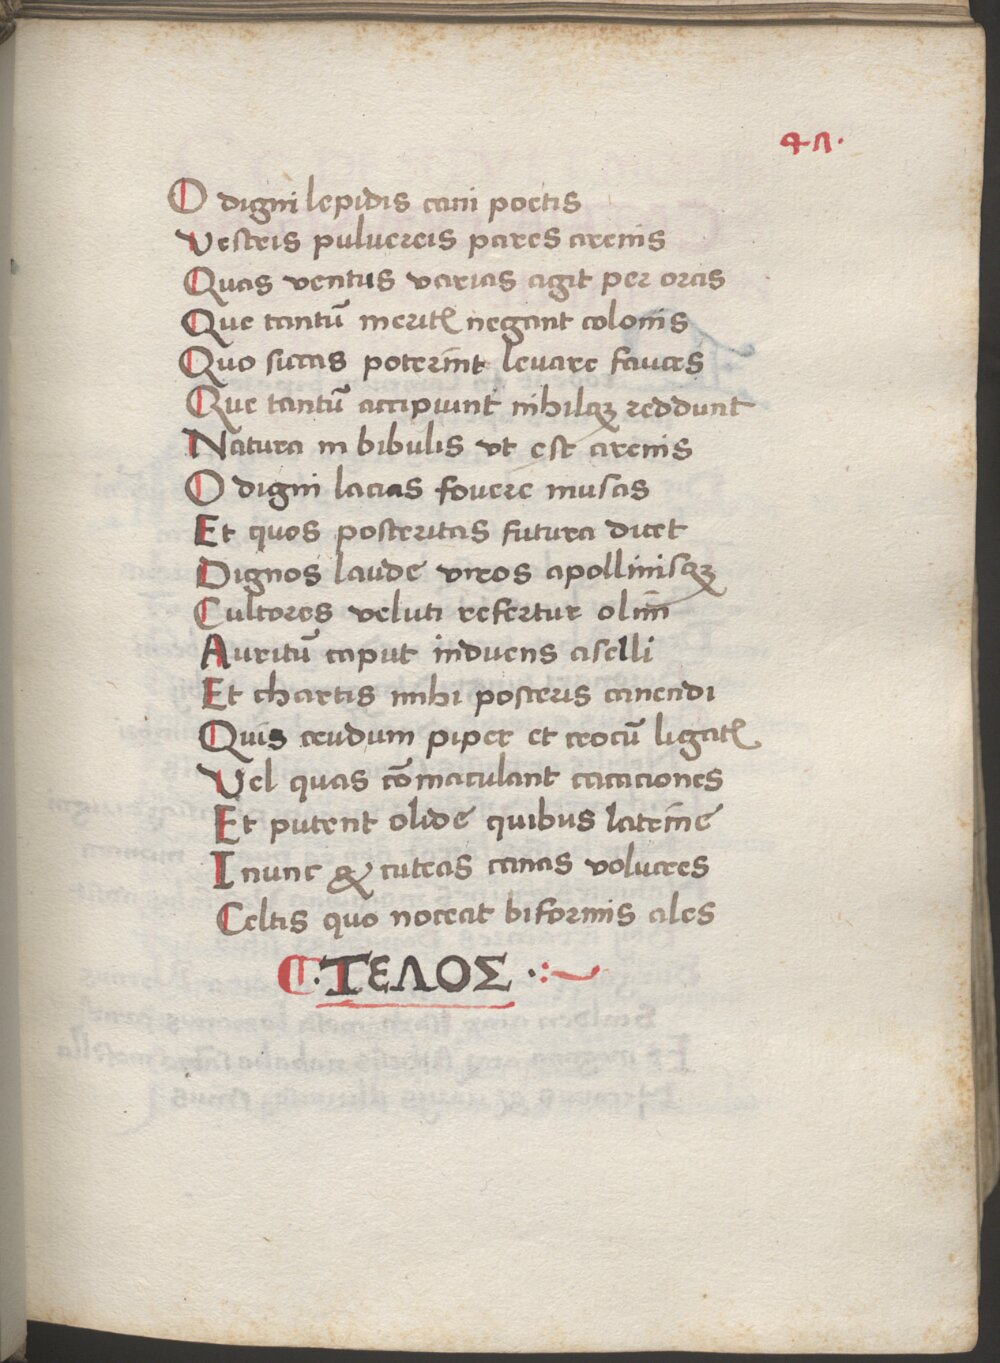 47.
O digni lepidis cani poetis
Vestris puluereis pares arenis
Quas ventus varias agit per oras
Que tantū meritꝭ negant colonis
Quo succas poterint levare fauces
Que tantū accipiunt nihilqꝫ reddunt
Natura in bibulis vt est arenis
O digni lacias fovere musas
Et quos posteritas futura dicet
Dignos laude viros apollinisqꝫ
Cultores veluti refertur olim
Auritū caput induens aselli
Et chartis mihi posteris canendi
Quis crudum piper et crocū ligatꝭ
Vel quas cōmaculant cacaciones
Et putent olide quibus latrine
I nunc & cuteas canas volucres
Celtis quo noceat biformis ales
ΤΕΛΟΣ